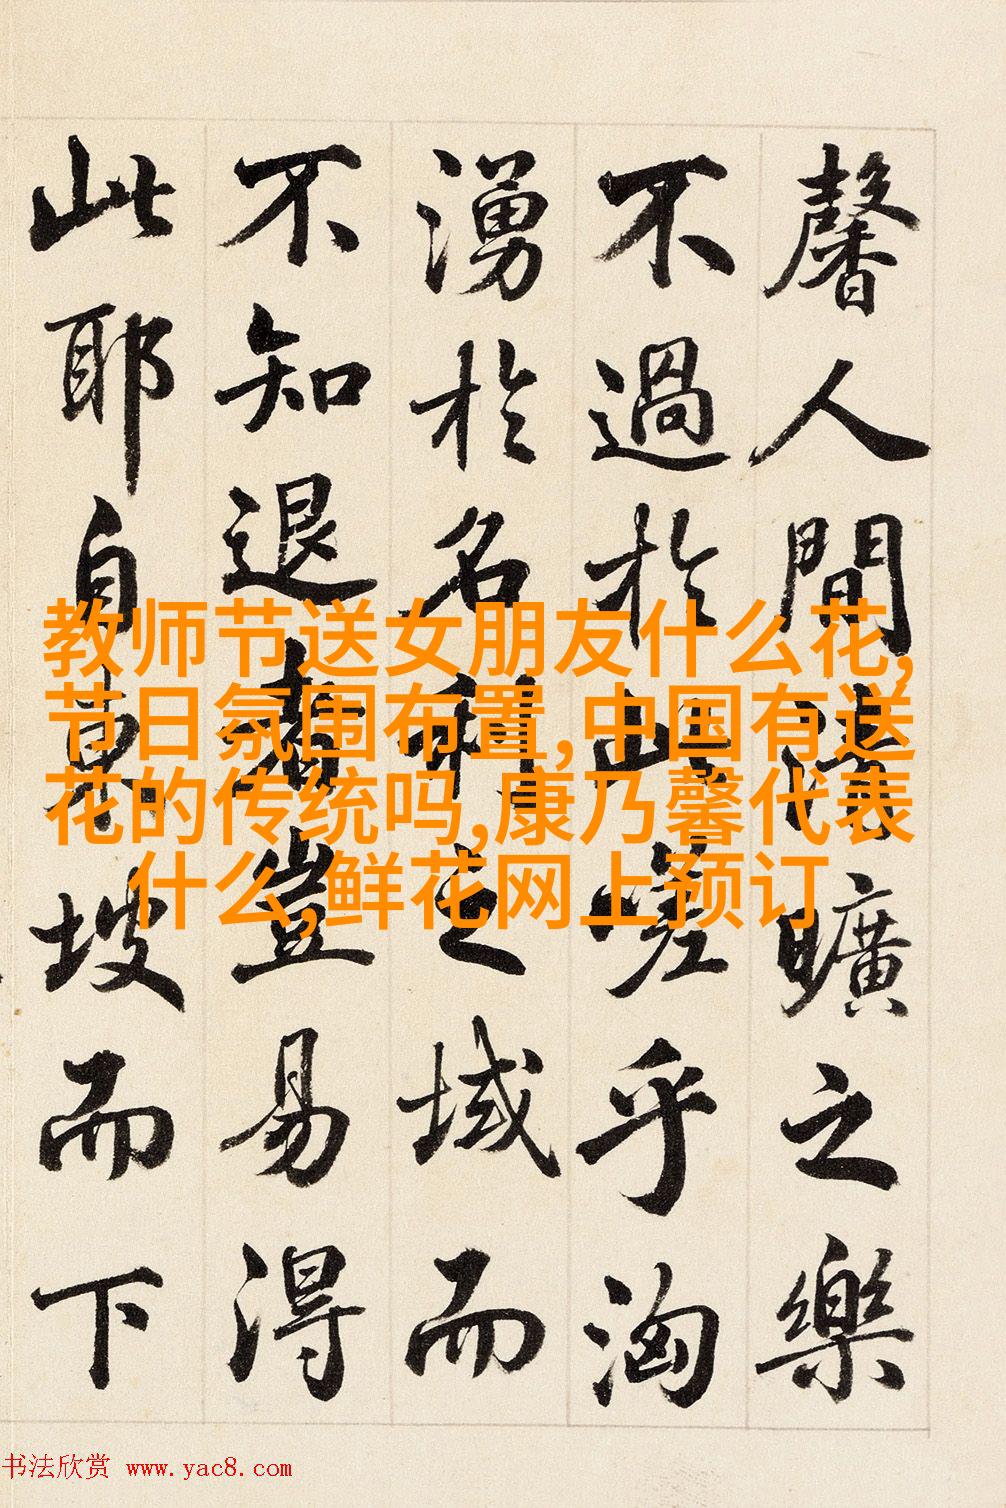 馨人間曠之樂
不過於此嗟乎洶
湧於名利之域而
不知退豈易得
此耶自東坡而下
教师节送女朋友什么花,
节日氛围布置,中国有送
花的传统吗,康乃馨代表
什么,鲜花网上预订
书法欣赏 www.yac8.com